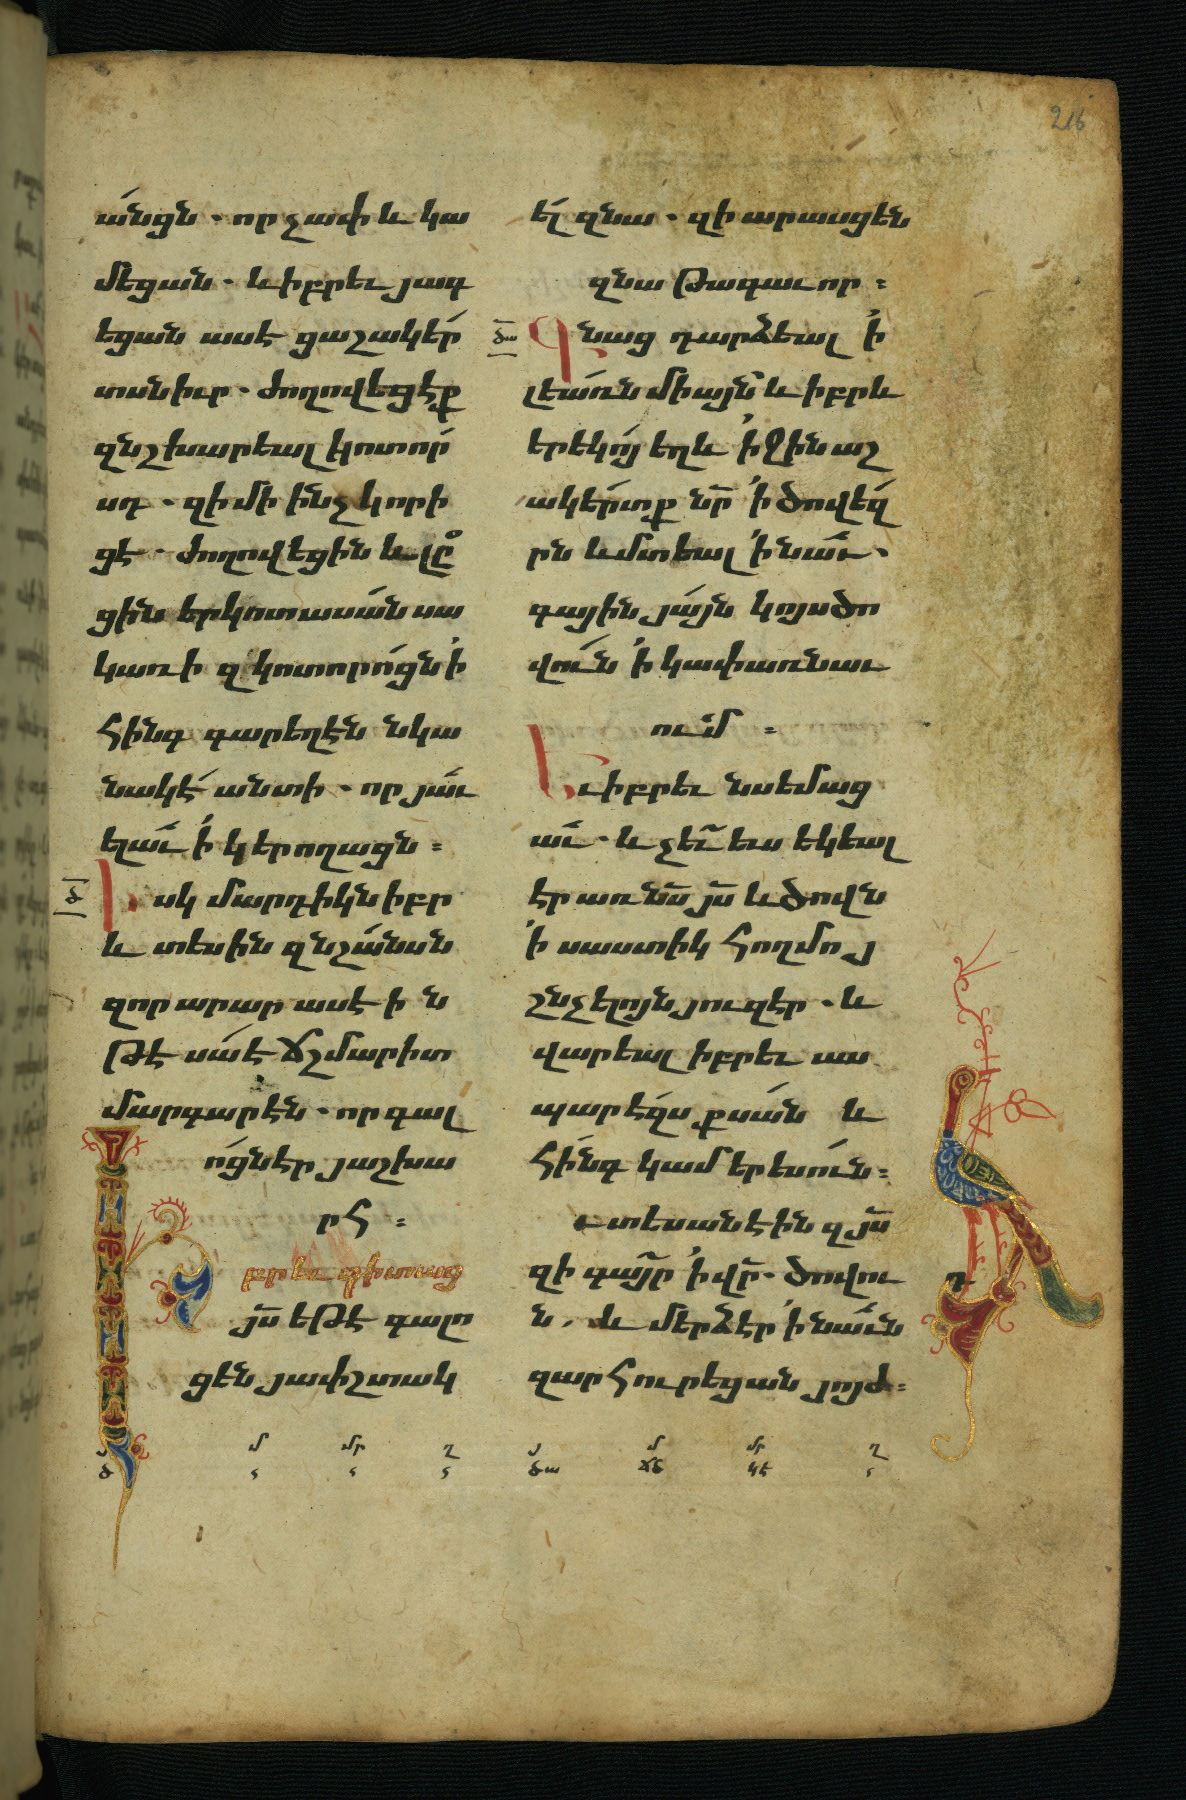 216
անցն · որչափ և կա
մեցան · և իբրեւ յագ
եցան ասէ ցաշակեր
տսն իւր · ժողովեցէք
զնշխարեալ կոտոր
սդ · զի մի ինչ կորի
ցէ · ժողովեցին և լը
ցին երկոտասան սա
կառի զկոտորոցն ի
հինգ գարեղէն նկա
նակէ անտի · որ յաւ
ելաւ ի կերողացն ։
Իսկ մարդիկն իբր
և տեսին զնշանսն
զոր արար ասէին
թէ սա է ճշմարիտ
մարգարէն · որ գալ
ոցն էր յաշխա
րհ ։
Իբրեւ գիտաց
յս եթէ գալո
ցեն յափշտակ
ել զնա · զի արասցեն
զնա թագաւոր ։
Գնաց դարձեալ ի
լեառն միայն և իբրև
երեկոյ եղև իջին աշ
ակերտք նր ի ծովեզ
րն և մտեալ ի նաւ ·
գային յայն կոյս ծո
վուն ի կափառնաւ
ում ։
Եւ իբրեւ նսեմաց
աւ · և չեւ ևս եկեալ
էր առ նս յս և ծովն
ի սաստիկ հողմոյ
շնչելոյն յուզէր · և
վարեալ իբրեւ աս
պարէզս քսան և
հինգ կամ երեսուն ։
տեսանեին զյս
զի գայր ի վր · ծովու
ն · և մերձ էր ի նաւն
զարհուրեցան յոյժ ։
մ մր ղ
մ մր ղ
ծա ճծ կէ